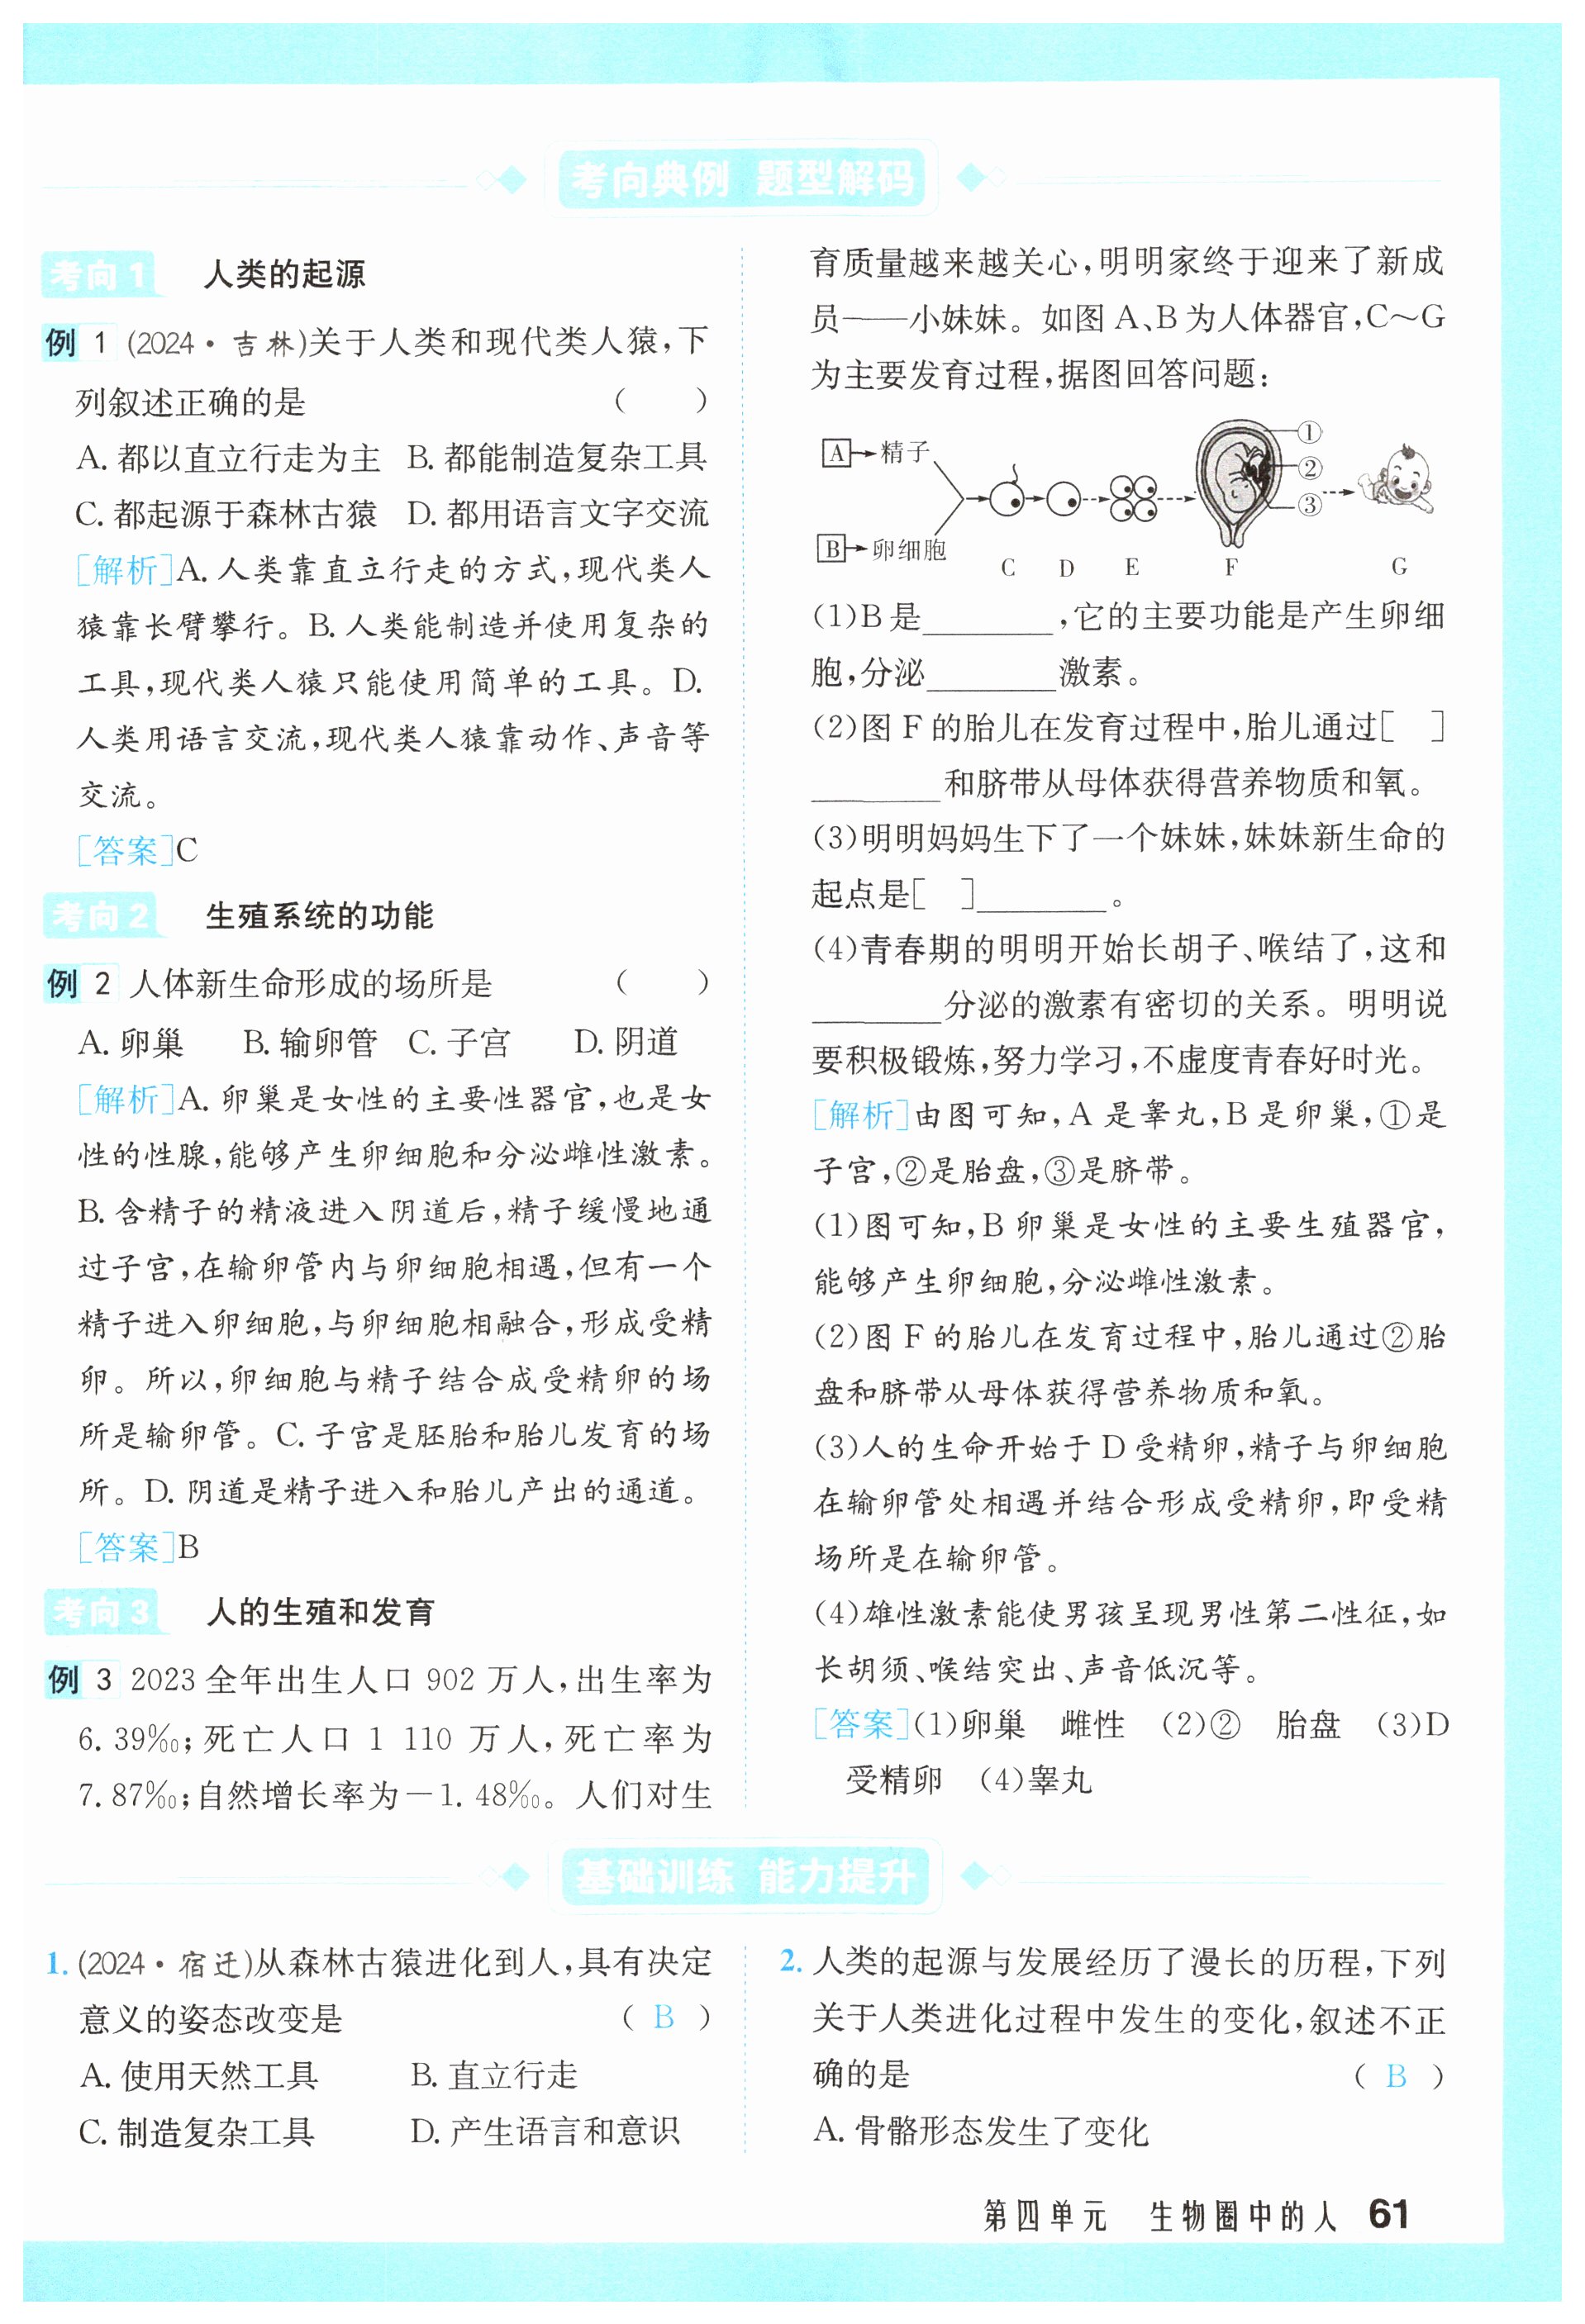 考向典例 题型解码
考向1 人类的起源
例 1 (2024·吉林)关于人类和现代类人猿,下
列叙述正确的是 ( )
A. 都以直立行走为主 B. 都能制造复杂工具
C. 都起源于森林古猿 D. 都用语言文字交流
[解析]A. 人类靠直立行走的方式,现代类人
猿靠长臂攀行。B. 人类能制造并使用复杂的
工具,现代类人猿只能使用简单的工具。D.
人类用语言交流,现代类人猿靠动作、声音等
交流。
[答案]C
考向2 生殖系统的功能
例 2 人体新生命形成的场所是 ( )
A. 卵巢 B. 输卵管 C. 子宫 D. 阴道
[解析]A. 卵巢是女性的主要性器官,也是女
性的性腺,能够产生卵细胞和分泌雌性激素。
B. 含精子的精液进入阴道后,精子缓慢地通
过子宫,在输卵管内与卵细胞相遇,但有一个
精子进入卵细胞,与卵细胞相融合,形成受精
卵。所以,卵细胞与精子结合成受精卵的场
所是输卵管。C. 子宫是胚胎和胎儿发育的场
所。D. 阴道是精子进入和胎儿产出的通道。
[答案]B
考向3 人的生殖和发育
例 3 2023 全年出生人口 902 万人,出生率为
6. 39‰;死亡人口 1 110 万人,死亡率为
7. 87‰;自然增长率为-1. 48‰。人们对生
育质量越来越关心,明明家终于迎来了新成
员——小妹妹。如图 A、B 为人体器官,C~G
为主要发育过程,据图回答问题:
A 精子
B 卵细胞
① ② ③
C D E F G
(1)B 是________,它的主要功能是产生卵细
胞,分泌________激素。
(2)图 F 的胎儿在发育过程中,胎儿通过[ ]
________和脐带从母体获得营养物质和氧。
(3)明明妈妈生下了一个妹妹,妹妹新生命的
起点是[ ]________。
(4)青春期的明明开始长胡子、喉结了,这和
________分泌的激素有密切的关系。明明说
要积极锻炼,努力学习,不虚度青春好时光。
[解析]由图可知,A 是睾丸,B 是卵巢,①是
子宫,②是胎盘,③是脐带。
(1)图可知,B 卵巢是女性的主要生殖器官,
能够产生卵细胞,分泌雌性激素。
(2)图 F 的胎儿在发育过程中,胎儿通过②胎
盘和脐带从母体获得营养物质和氧。
(3)人的生命开始于 D 受精卵,精子与卵细胞
在输卵管处相遇并结合形成受精卵,即受精
场所是在输卵管。
(4)雄性激素能使男孩呈现男性第二性征,如
长胡须、喉结突出、声音低沉等。
[答案](1)卵巢 雌性 (2)② 胎盘 (3)D
受精卵 (4)睾丸
基础训练 能力提升
1. (2024·宿迁)从森林古猿进化到人,具有决定
意义的姿态改变是 ( B )
A. 使用天然工具 B. 直立行走
C. 制造复杂工具 D. 产生语言和意识
2. 人类的起源与发展经历了漫长的历程,下列
关于人类进化过程中发生的变化,叙述不正
确的是 ( B )
A. 骨骼形态发生了变化
第四单元 生物圈中的人 61